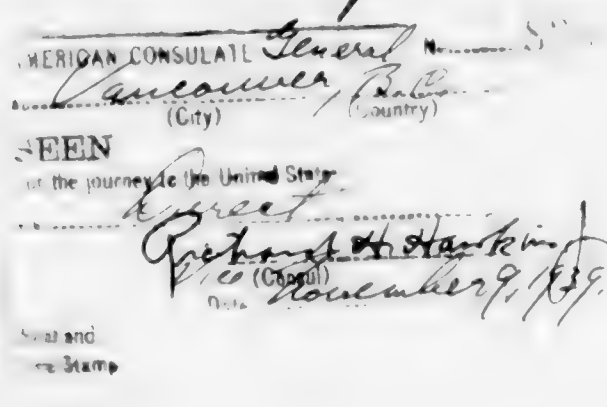 AMERICAN CONSULATE General No.
Vancouver, B.C.
(City) (Country)
SEEN
For the journey to the United States
Direct
Richard H. Hawkins Jr
Vice (Consul)
Date November 9, 1939.
Seal and
Fee Stamp